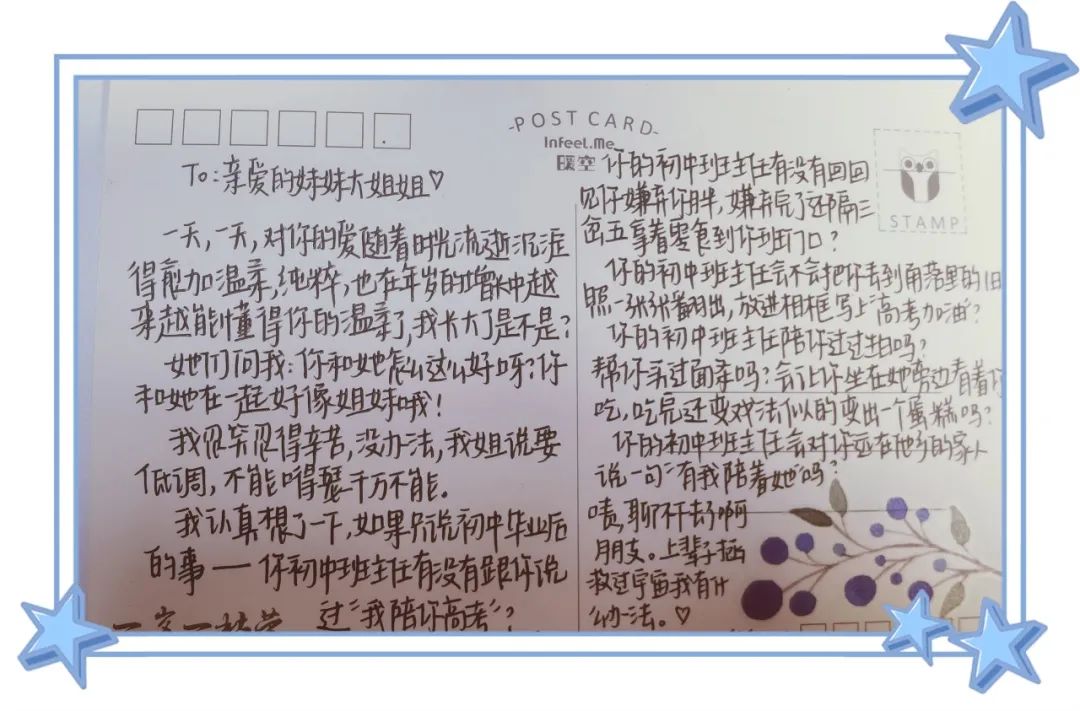 POST CARD
InFeel.Me
暖空
STAMP
To:亲爱的妹妹大姐姐♡
一天,一天,对你的爱随着时光流逝沉淀
得愈加温柔,纯粹,也在年岁的增长中越
来越能懂得你的温柔了,我长大了是不是?
她们问我:你和她怎么这么好呀?你
和她在一起好像姐妹哦!
我忍笑忍得辛苦,没办法,我姐说要
低调,不能嘚瑟千万不能。
我认真想了一下,如果只说初中毕业后
的事——你初中班主任有没有跟你说
过“我陪你高考”?
你的初中班主任有没有回回
见你嫌弃你胖,嫌弃完了还隔三
岔五拿着零食到你班门口?
你的初中班主任会不会把你丢到角落里的旧
照一张张翻出,放进相框写上“高考加油”?
你的初中班主任陪你过过拍吗?
帮你买过面条吗?会让你坐在她旁边看着你
吃,吃完还变戏法似的变出一个蛋糕吗?
你的初中班主任会对你远在他乡的家人
说一句“有我陪着她”吗?
啧,聊不下去了啊
朋友。上辈子拯
救过宇宙我有什
么办法。♡